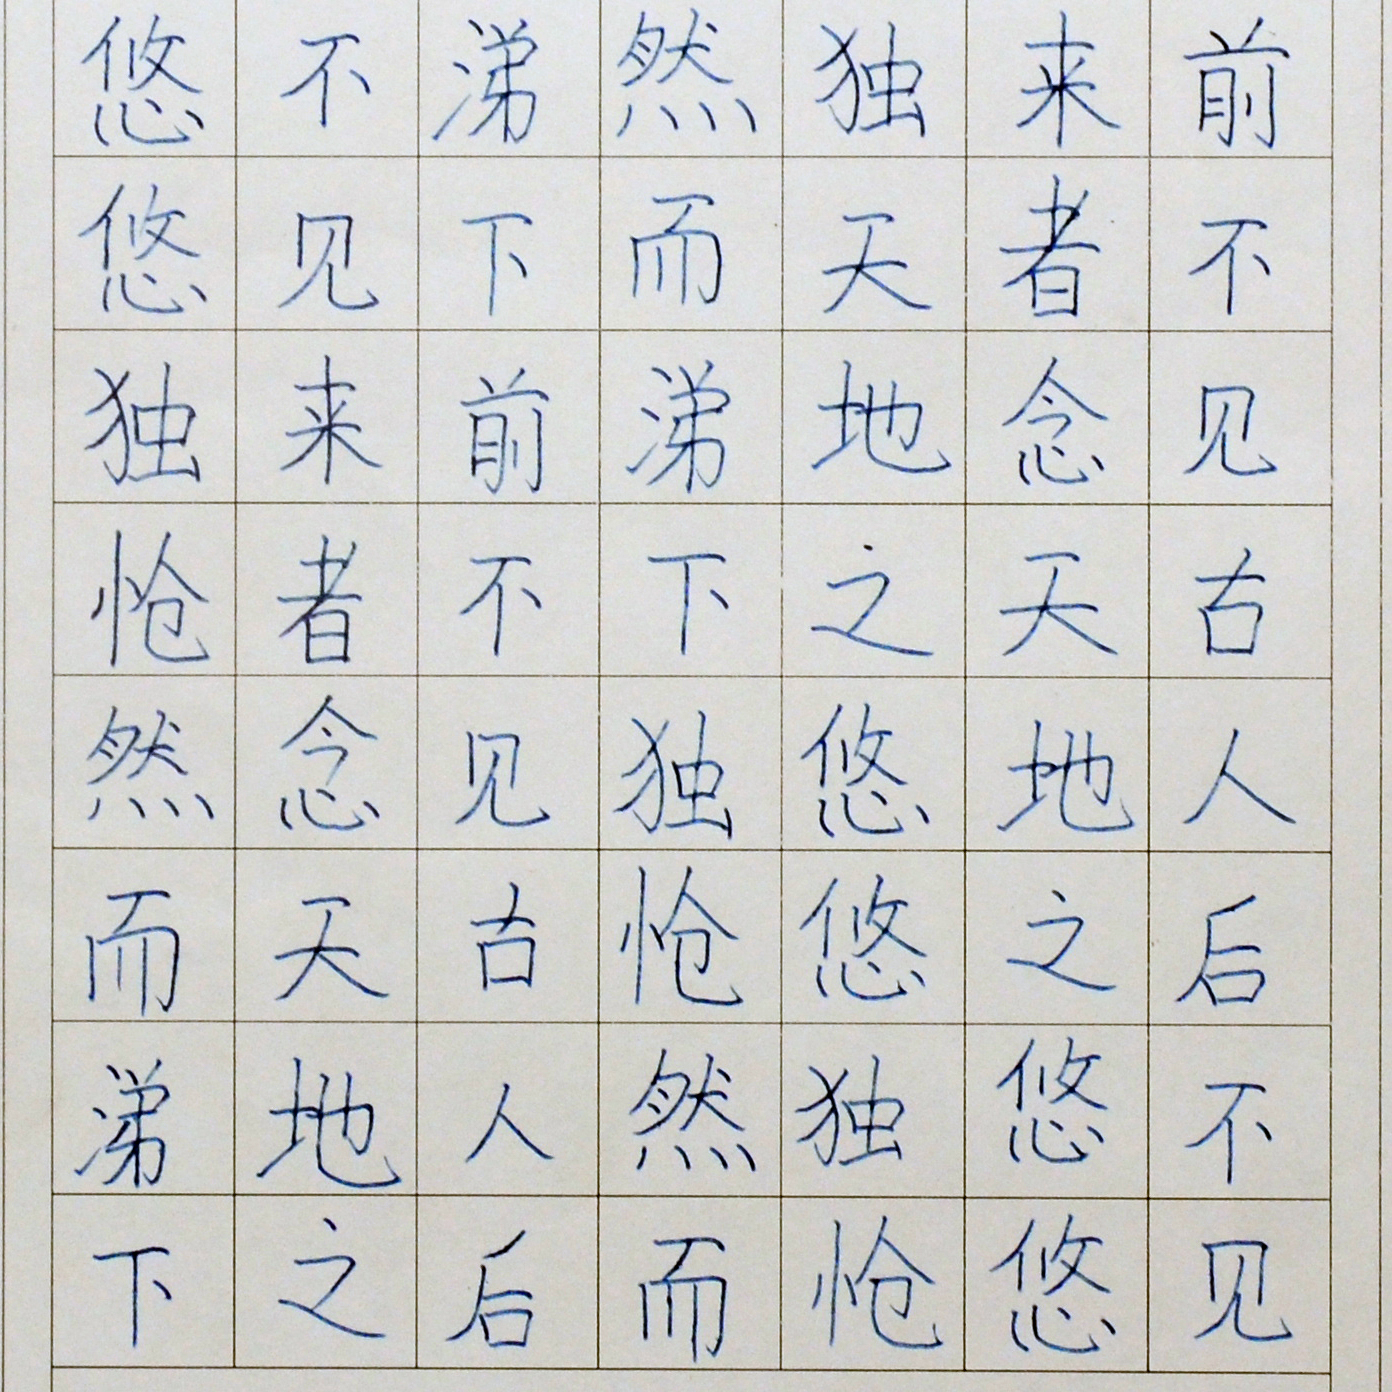 前不见古人后不见
来者念天地之悠悠
独天地之悠悠独怆
然而涕下独怆然而
涕下前不见古人后
不见来者念天地之
悠悠独怆然而涕下